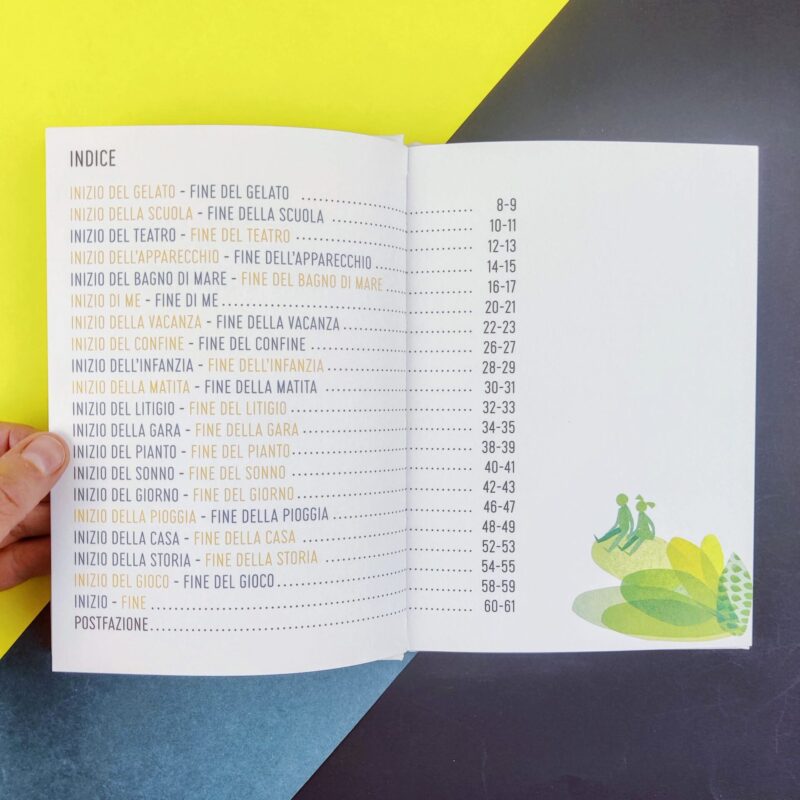 INDICE
INIZIO DEL GELATO - FINE DEL GELATO ........ 8-9
INIZIO DELLA SCUOLA - FINE DELLA SCUOLA ........ 10-11
INIZIO DEL TEATRO - FINE DEL TEATRO ........ 12-13
INIZIO DELL'APPARECCHIO - FINE DELL'APPARECCHIO ........ 14-15
INIZIO DEL BAGNO DI MARE - FINE DEL BAGNO DI MARE ........ 16-17
INIZIO DI ME - FINE DI ME ........ 20-21
INIZIO DELLA VACANZA - FINE DELLA VACANZA ........ 22-23
INIZIO DEL CONFINE - FINE DEL CONFINE ........ 26-27
INIZIO DELL'INFANZIA - FINE DELL'INFANZIA ........ 28-29
INIZIO DELLA MATITA - FINE DELLA MATITA ........ 30-31
INIZIO DEL LITIGIO - FINE DEL LITIGIO ........ 32-33
INIZIO DELLA GARA - FINE DELLA GARA ........ 34-35
INIZIO DEL PIANTO - FINE DEL PIANTO ........ 38-39
INIZIO DEL SONNO - FINE DEL SONNO ........ 40-41
INIZIO DEL GIORNO - FINE DEL GIORNO ........ 42-43
INIZIO DELLA PIOGGIA - FINE DELLA PIOGGIA ........ 46-47
INIZIO DELLA CASA - FINE DELLA CASA ........ 48-49
INIZIO DELLA STORIA - FINE DELLA STORIA ........ 52-53
INIZIO DEL GIOCO - FINE DEL GIOCO ........ 54-55
INIZIO - FINE ........ 58-59
POSTFAZIONE ........ 60-61